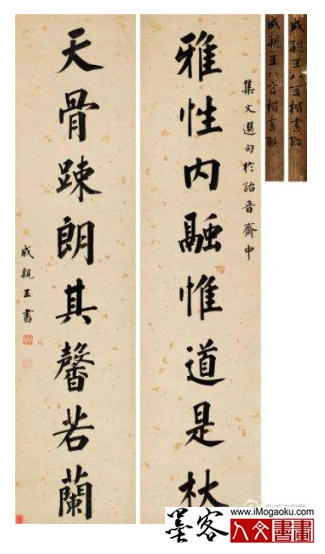 成親王八言楷書聯
成親王八言楷書聯
集文選句於詒晋齊中
雅性内融惟道是杖
天骨踈朗其馨若蘭
成親王書
墨客
www.iMogaoku.com
人文書畫